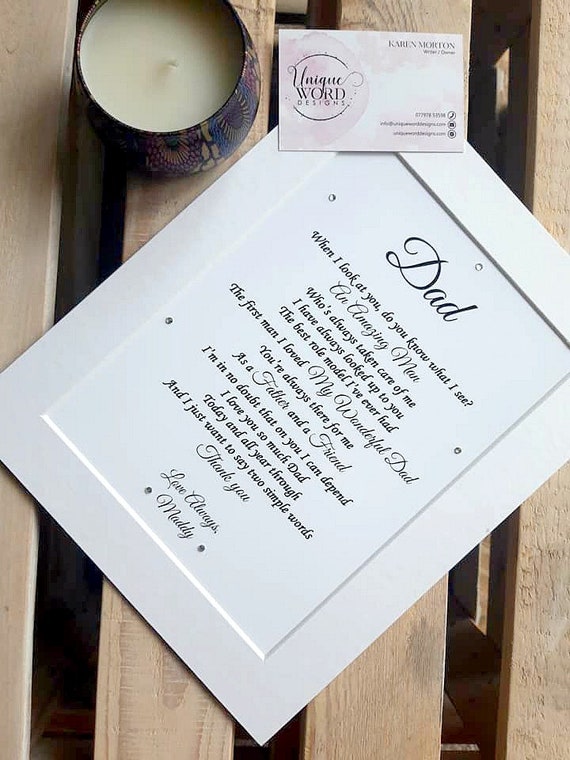 KAREN MORTON
Writer / Owner
Unique
WORD
DESIGNS
077978 53598
info@uniqueworddesigns.com
uniqueworddesigns.com
Dad
When I look at you, do you know what I see?
An Amazing Man
Who's always taken care of me
I have always looked up to you
The best role model I've ever had
The first man I loved My Wonderful Dad
You're always there for me
As a Father and a Friend
I'm in no doubt that on you I can depend
I love you so much Dad
Today and all year through
And I just want to say two simple words
Thank you
Love Always,
Maddy